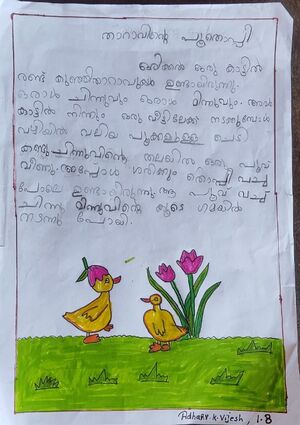 താറാവിന്റെ പൂതൊപ്പി
ഒരിക്കൽ ഒരു കാട്ടിൽ
രണ്ട് കുഞ്ഞിതാറാവുകൾ ഉണ്ടായിരുന്നു.
ഒരാൾ ചിന്നുവും ഒരാൾ മിന്നുവും. അവർ
കാട്ടിൽ നിന്നും ഒരു വീട്ടിലേക്ക് നടന്നപ്പോൾ
വഴിയിൽ വലിയ പൂക്കളുള്ള ചെടി
കണ്ടു. ചിന്നുവിന്റെ തലയിൽ ഒരു പൂവ്
വീണു. അപ്പോൾ ശരിക്കും തൊപ്പി വച്ച
പോലെ ഉണ്ടായിരുന്നു. ആ പൂവ് വച്ച്
ചിന്നു മിന്നുവിന്റെ കൂടെ ഗമയിൽ
നടന്നു പോയി.
Adharv.K.Vijesh, 1.B